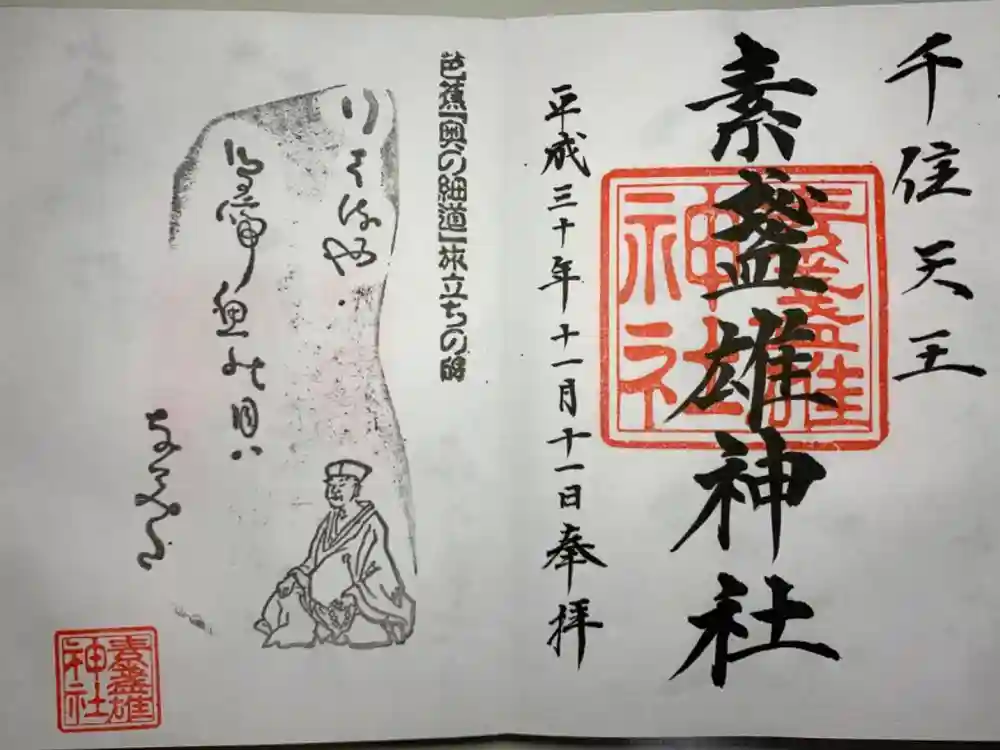 千住天王
素盞雄神社
素盞雄神社
平成三十年十一月十一日奉拝
芭蕉「奥の細道」旅立ちの碑
行はるや
鳥啼魚の目ハ
なみだ
素盞雄神社